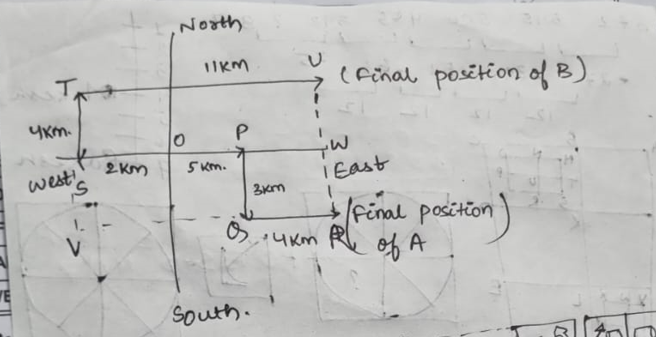 North
11KM
T
U
(Final position of B)
4KM.
O
P
W
West
S
2KM
5 KM.
East
3KM
V
Q
4KM
R
(Final position
of A
)
South.
3